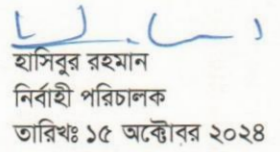 হাসিবুর রহমান
নির্বাহী পরিচালক
তারিখঃ ১৫ অক্টোবর ২০২৪